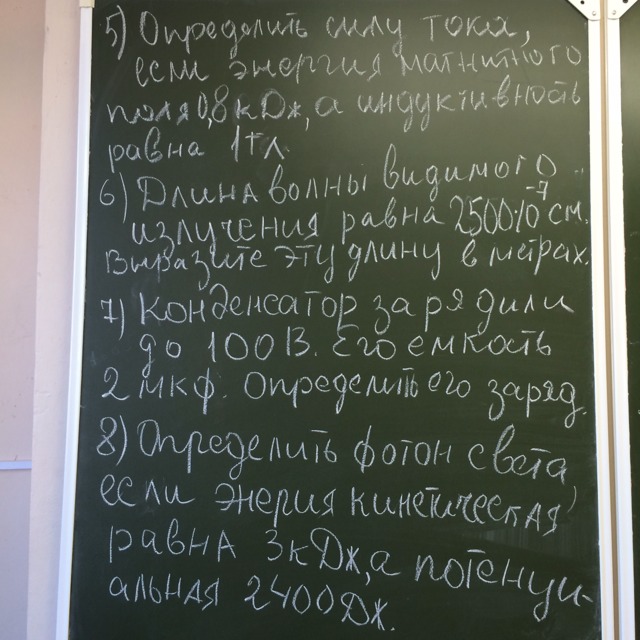 5) Определить силу тока,
если энергия магнитного
поля 0,8 кДж, а индуктивность
равна 1тл
6) Длина волны видимого
излучения равна 2500·10⁻⁷ см.
Выразите эту длину в метрах.
7) Конденсатор зарядили
до 100 В. Его емкать
2 мкф. Определить его заряд.
8) Определить фотон света,
если энерия кинетическая
равна 3кДж, а потенци-
альная 2400Дж.